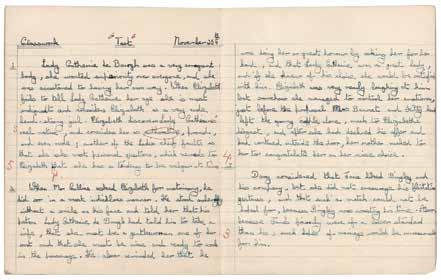 Classwork "Test" November 25th
1 Lady Catherine de Bourgh was a very arrogant
lady, she wanted superiority over everyone, and she
was accustomed to having her own way. When Elizabeth
fails to tell Lady Catherine her age she is most
indignant and considers Elizabeth as a very rude,
head-strong girl. Elizabeth discovers Lady Catherine's
and considers her as proud,
and even rude; another of her Ladyship's faults is
that she asks most personal questions, which reveals to
5 Elizabeth that she has a tendency to be vulgar at times
2 When Mr Collins asked Elizabeth for matrimony, he
did so in a most ridiculous manner. He stood
without a smile on his face and told her that his
patron Lady Catherine de Bourgh had told him to take a
wife, that she must be a gentlewoman one of her
sort and that she must be wise and ready to
in the parsonage. He also reminded her that he
was doing her a great honour by asking her for her
hand, and that Lady Catherine was a great lady,
and if she knew of his choice she would be satisfied
with him. Elizabeth was very nearly laughing at him
but somehow she managed to control her emotions,
just before the proposal Mrs Bennet and Kitty had
left the young couple alone, much to Elizabeth's
disgust, and after she had declined his offer and
had ventured outside the door, her mother rushed to
4 her to congratulate her on her wise choice.
3 Darcy considered that Jane liked Bingley and
his company, but she did not encourage his
gestures, and that such a match could not be
hoped for, because Bingley was wasting his time. Also
because Jane's family were of a lower standard
3 than his, such hopes of marriage would be unreasonable
for him.